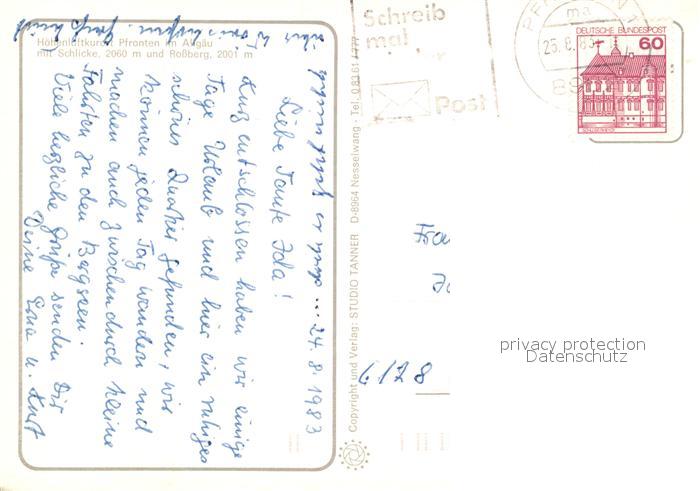 Höhenluftkurort Pfronten im Allgäu
mit Schlicke, 2060 m und Roßberg, 2001 m
24.8.1983
Liebe Tante Ida!
Kurz entschlossen haben wir einige
Tage Urlaub und hier ein ruhiges
schönes Quartier gefunden, wir
können jeden Tag wandern und
machen auch zwischendurch kleine
Fahrten zu den Bergseen.
Viele herzliche Grüße senden Dir
Deine Erna u. Kurt
Copyright und Verlag: STUDIO TANNER D-8964 Nesselwang · Tel. 0 83 61 / 777
Schreib
mal
Post
25.8.83
89
DEUTSCHE BUNDESPOST
60
Frau
6128
privacy protection
Datenschutz